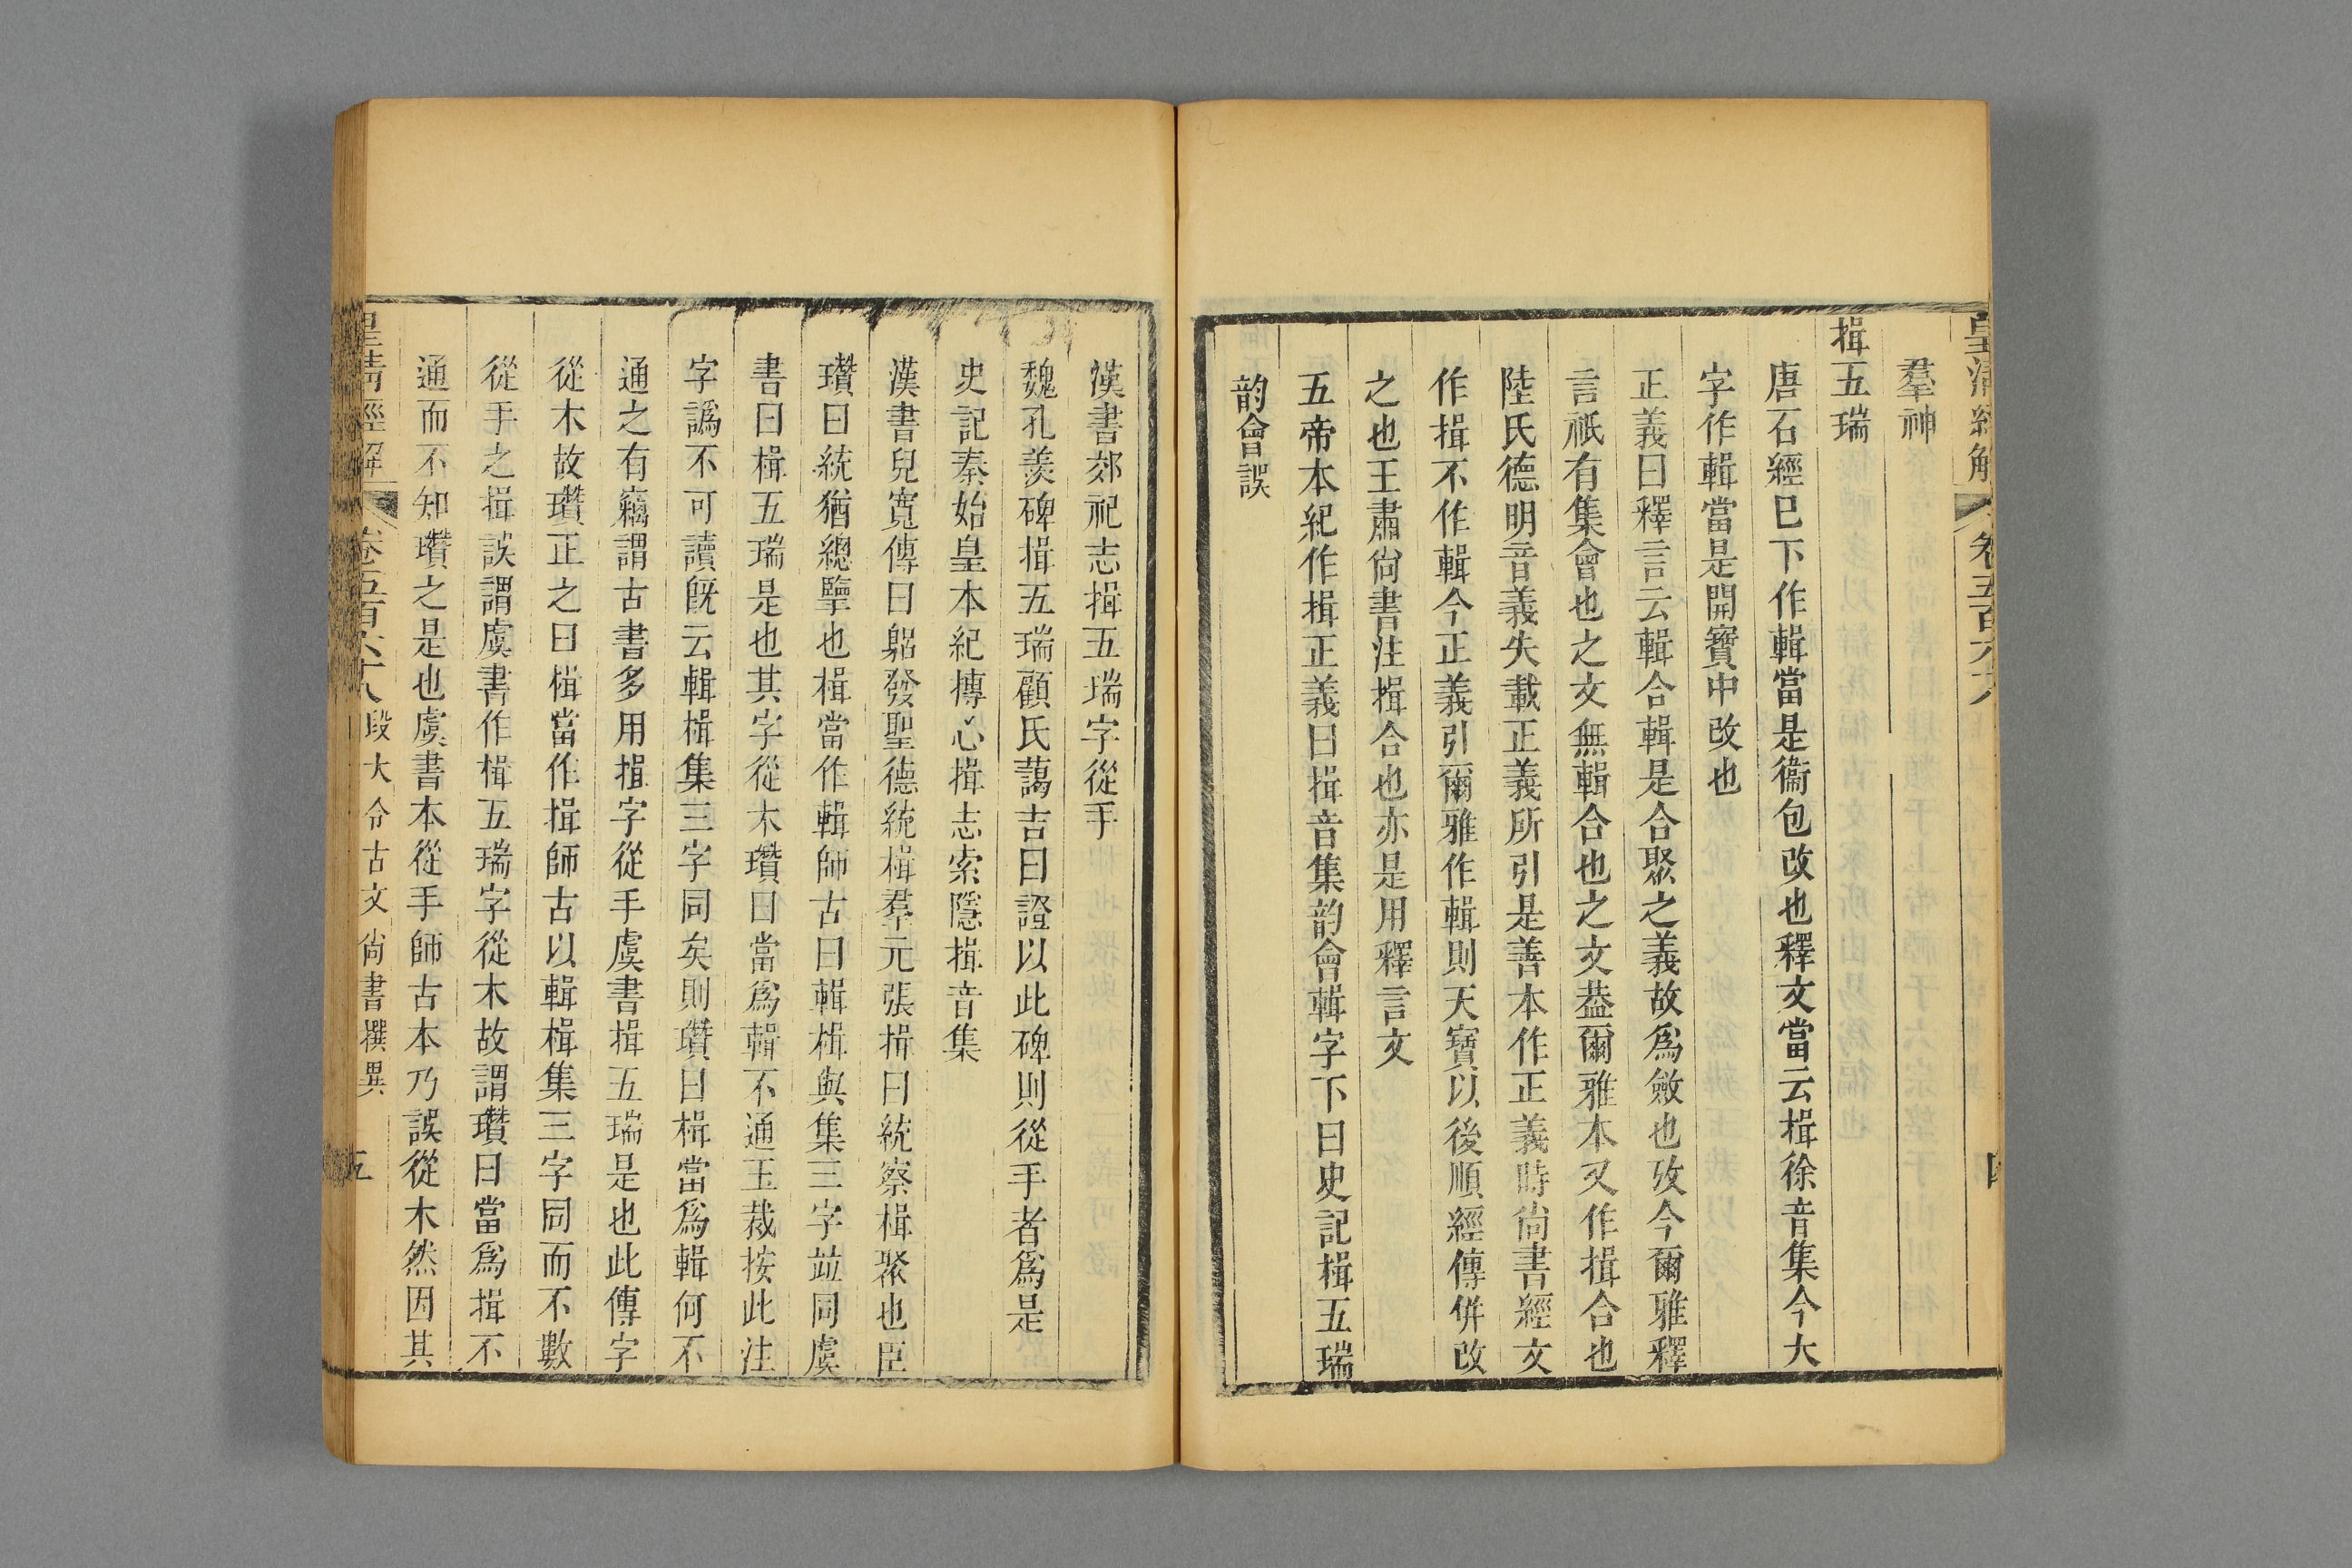 皇清經解 卷五百六十八
羣神
揖五瑞
唐石經巳下作輯當是衞包改也釋文當云揖徐音集今大
字作輯當是開寶中改也
正義曰釋言云輯合輯是合聚之義故爲斂也攷今爾雅釋
言祇有集會也之文無輯合也之文葢爾雅本又作揖合也
陸氏德明音義失載正義所引是善本作正義時尙書經文
作揖不作輯今正義引爾雅作輯則天寶以後順經傳併改
之也王肅尙書注揖合也亦是用釋言文
五帝本紀作揖正義曰揖音集韵會輯字下曰史記楫五瑞
韵會誤
漢書郊祀志揖五瑞字從手
魏孔羨碑揖五瑞顧氏藹吉曰證以此碑則從手者爲是
史記秦始皇本紀摶心揖志索隱揖音集
漢書兒寬傳曰躬發聖德統楫羣元張揖曰統察楫聚也臣
瓚曰統猶總擥也楫當作輯師古曰輯楫與集三字竝同虞
書曰楫五瑞是也其字從木瓚曰當爲輯不通玉裁按此注
字譌不可讀旣云輯楫集三字同矣則瓚曰楫當爲輯何不
通之有竊謂古書多用揖字從手虞書揖五瑞是也此傳字
從木故瓚正之曰楫當作揖師古以輯楫集三字同而不數
從手之揖誤謂虞書作楫五瑞字從木故謂瓚曰當爲揖不
通而不知瓚之是也虞書本從手師古本乃誤從木然因其
皇清經解 卷五百六十八 段大令古文尙書撰異 五